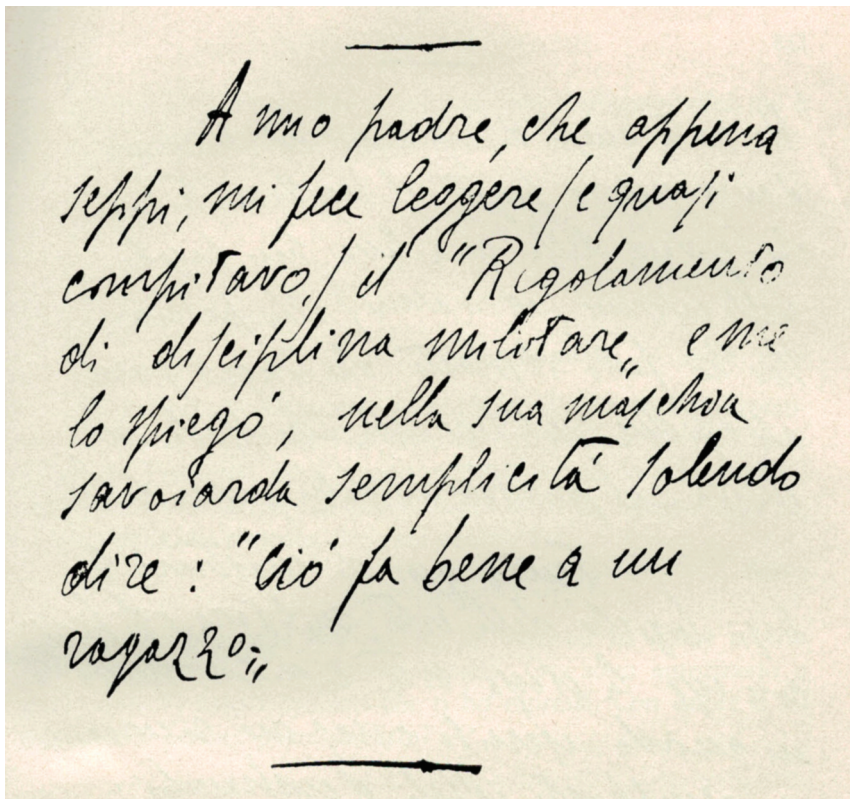 A mio padre, che appena
seppi, mi fece leggere (e quasi
compitavo,) il "Rigolamento
di disciplina militare„ e me
lo spiegó, nella sua maschia
savoiarda semplicitá solendo
dire: "Ció fa bene a un
ragazzo;„